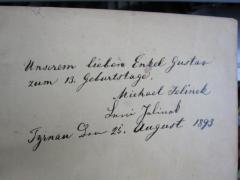 Unserem lieben Enkel Gustav
zum 13. Geburtstage.
Michael Jelinek
Jelinek
Tyrnau Den 25. August 1893